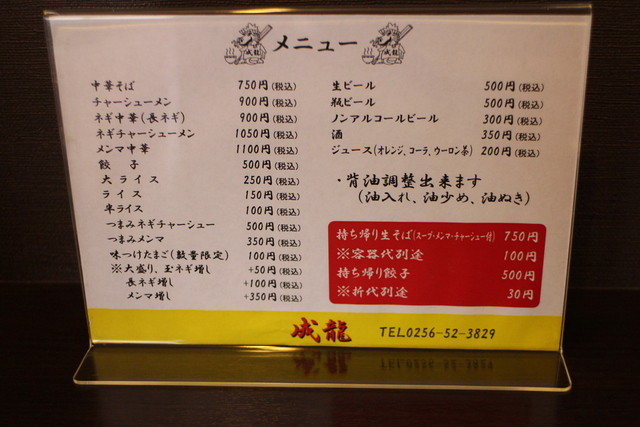 メニュー
中華そば 750円(税込)
チャーシューメン 900円(税込)
ネギ中華(長ネギ) 900円(税込)
ネギチャーシューメン 1050円(税込)
メンマ中華 1100円(税込)
餃子 500円(税込)
大ライス 250円(税込)
ライス 150円(税込)
半ライス 100円(税込)
つまみネギチャーシュー 500円(税込)
つまみメンマ 350円(税込)
味つけたまご(数量限定) 100円(税込)
※大盛り、玉ネギ増し +50円(税込)
長ネギ増し +100円(税込)
メンマ増し +350円(税込)
生ビール 500円(税込)
瓶ビール 500円(税込)
ノンアルコールビール 300円(税込)
酒 350円(税込)
ジュース(オレンジ、コーラ、ウーロン茶) 200円(税込)
・背油調整出来ます
(油入れ、油少め、油ぬき)
持ち帰り生そば(スープ・メンマ・チャーシュー付) 750円
※容器代別途 100円
持ち帰り餃子 500円
※折代別途 30円
成龍 TEL.0256-52-3829